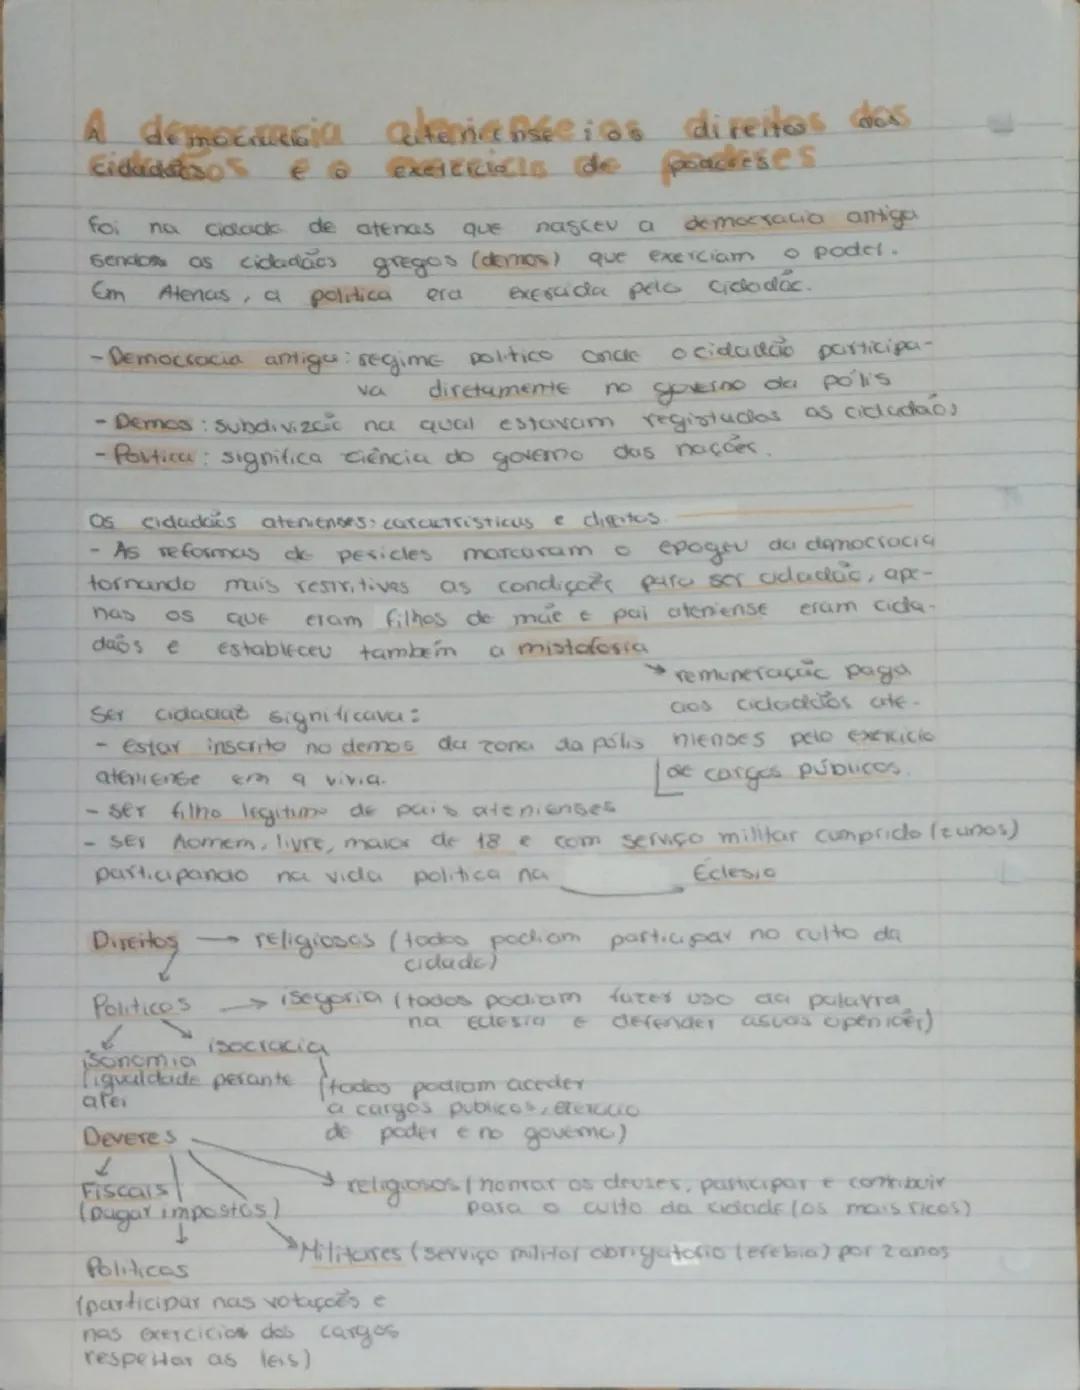 A democracia ateniense: os direitos dos
cidadãos e o exercício de poderes
Foi na cidade de atenas que nasceu a democracia antiga
sendo os cidadãos gregos (demos) que exerciam o poder.
Em Atenas, a politica era exercida pelo cidadão.
- Democracia antiga: regime politico onde o cidadão participa-
va diretamente no governo da pólis
- Demos: subdivizão na qual estavam registados os cidadãos
- Politica: significa ciência do governo das nações.
Os cidadãos atenienses: características e direitos.
- As reformas de pericles marcaram o epogeu da democracia
tornando mais restritivas as condições para ser cidadão, ape-
nas os que eram filhos de mãe e pai ateniense eram cida-
daõs e estableceu também a mistoforia
→ remuneração paga
aos cidadãos ate-
nienses pelo exercicio
de cargos públicos.
Ser cidadão significava:
- estar inscrito no demos da zona da pólis
ateniense em q vivia.
- ser filho legitimo de pais atenienses
- ser homem, livre, maior de 18 e com serviço militar cumprido (2 anos)
participando na vida politica na Eclesia
Direitos → religiosos (todos podiam participar no culto da
cidade)
Politicos → isegoria (todos podiam fazer uso da palavra
na Eclesia e defender asuas openiões)
isocracia
isonomia
(igualdade perante
a lei
(todos podiam aceder
a cargos publicos, exercicio
de poder e no governo)
Deveres
Fiscais
(pagar impostos)
→ religiosos (honrar os deuses, participar e contribuir
para o culto da cidade (os mais ricos)
Militares (serviço militar obrigatorio (efebia) por 2 anos
Politicos
(participar nas votações e
nas exercicios dos cargos
respeitar as leis)